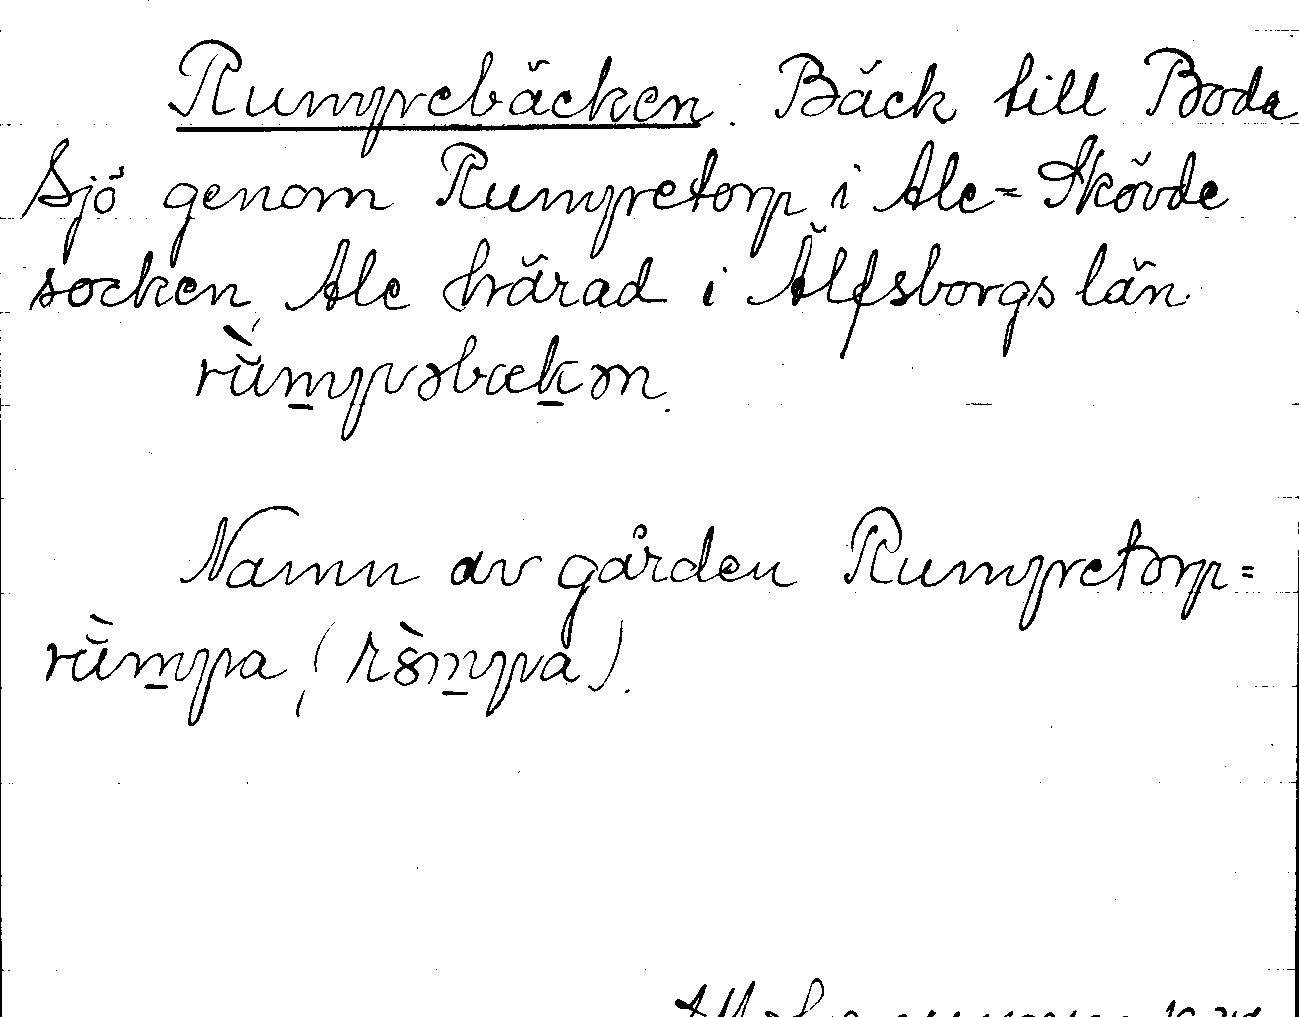 Rumpebäcken. Bäck till Boda
sjö genom Rumpetorp i Ale-Skövde
socken, Ale härad i Älfsborgs län.
rùm̱pəbæḵən.
Namn av gården Rumpetorp =
rùm̱pa, (ròm̱pa).